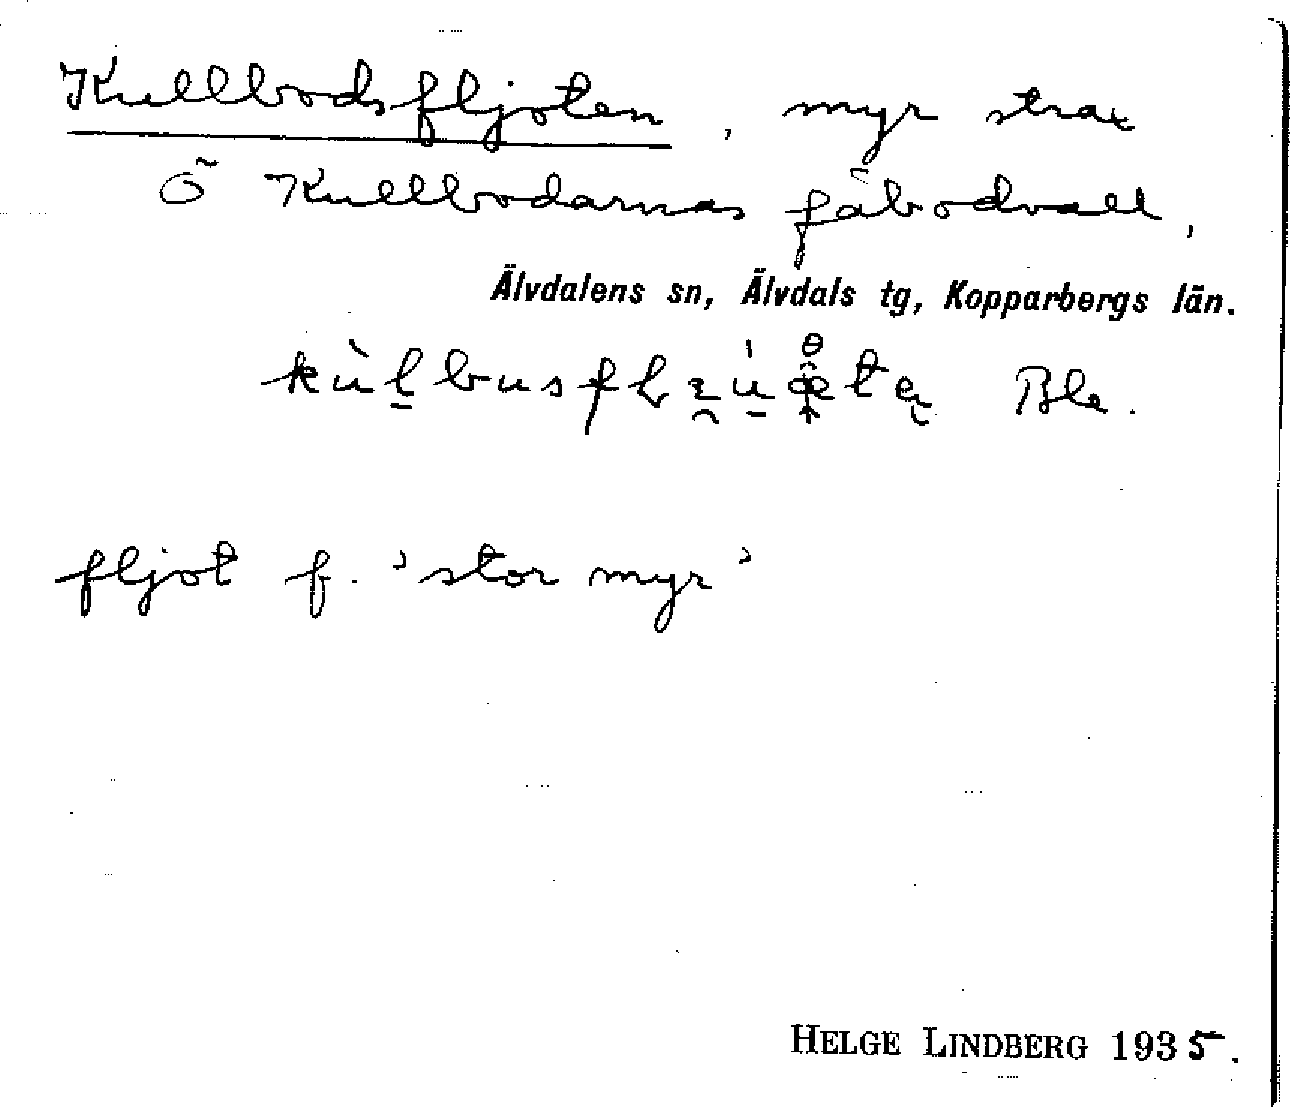 Kullbodsfljoten, myr strax
Ö Kullbodarnas fäbodvall,
Älvdalens sn, Älvdals tg, Kopparbergs län.
Ble.
fljot f. 'stor myr'
HELGE LINDBERG 1935.